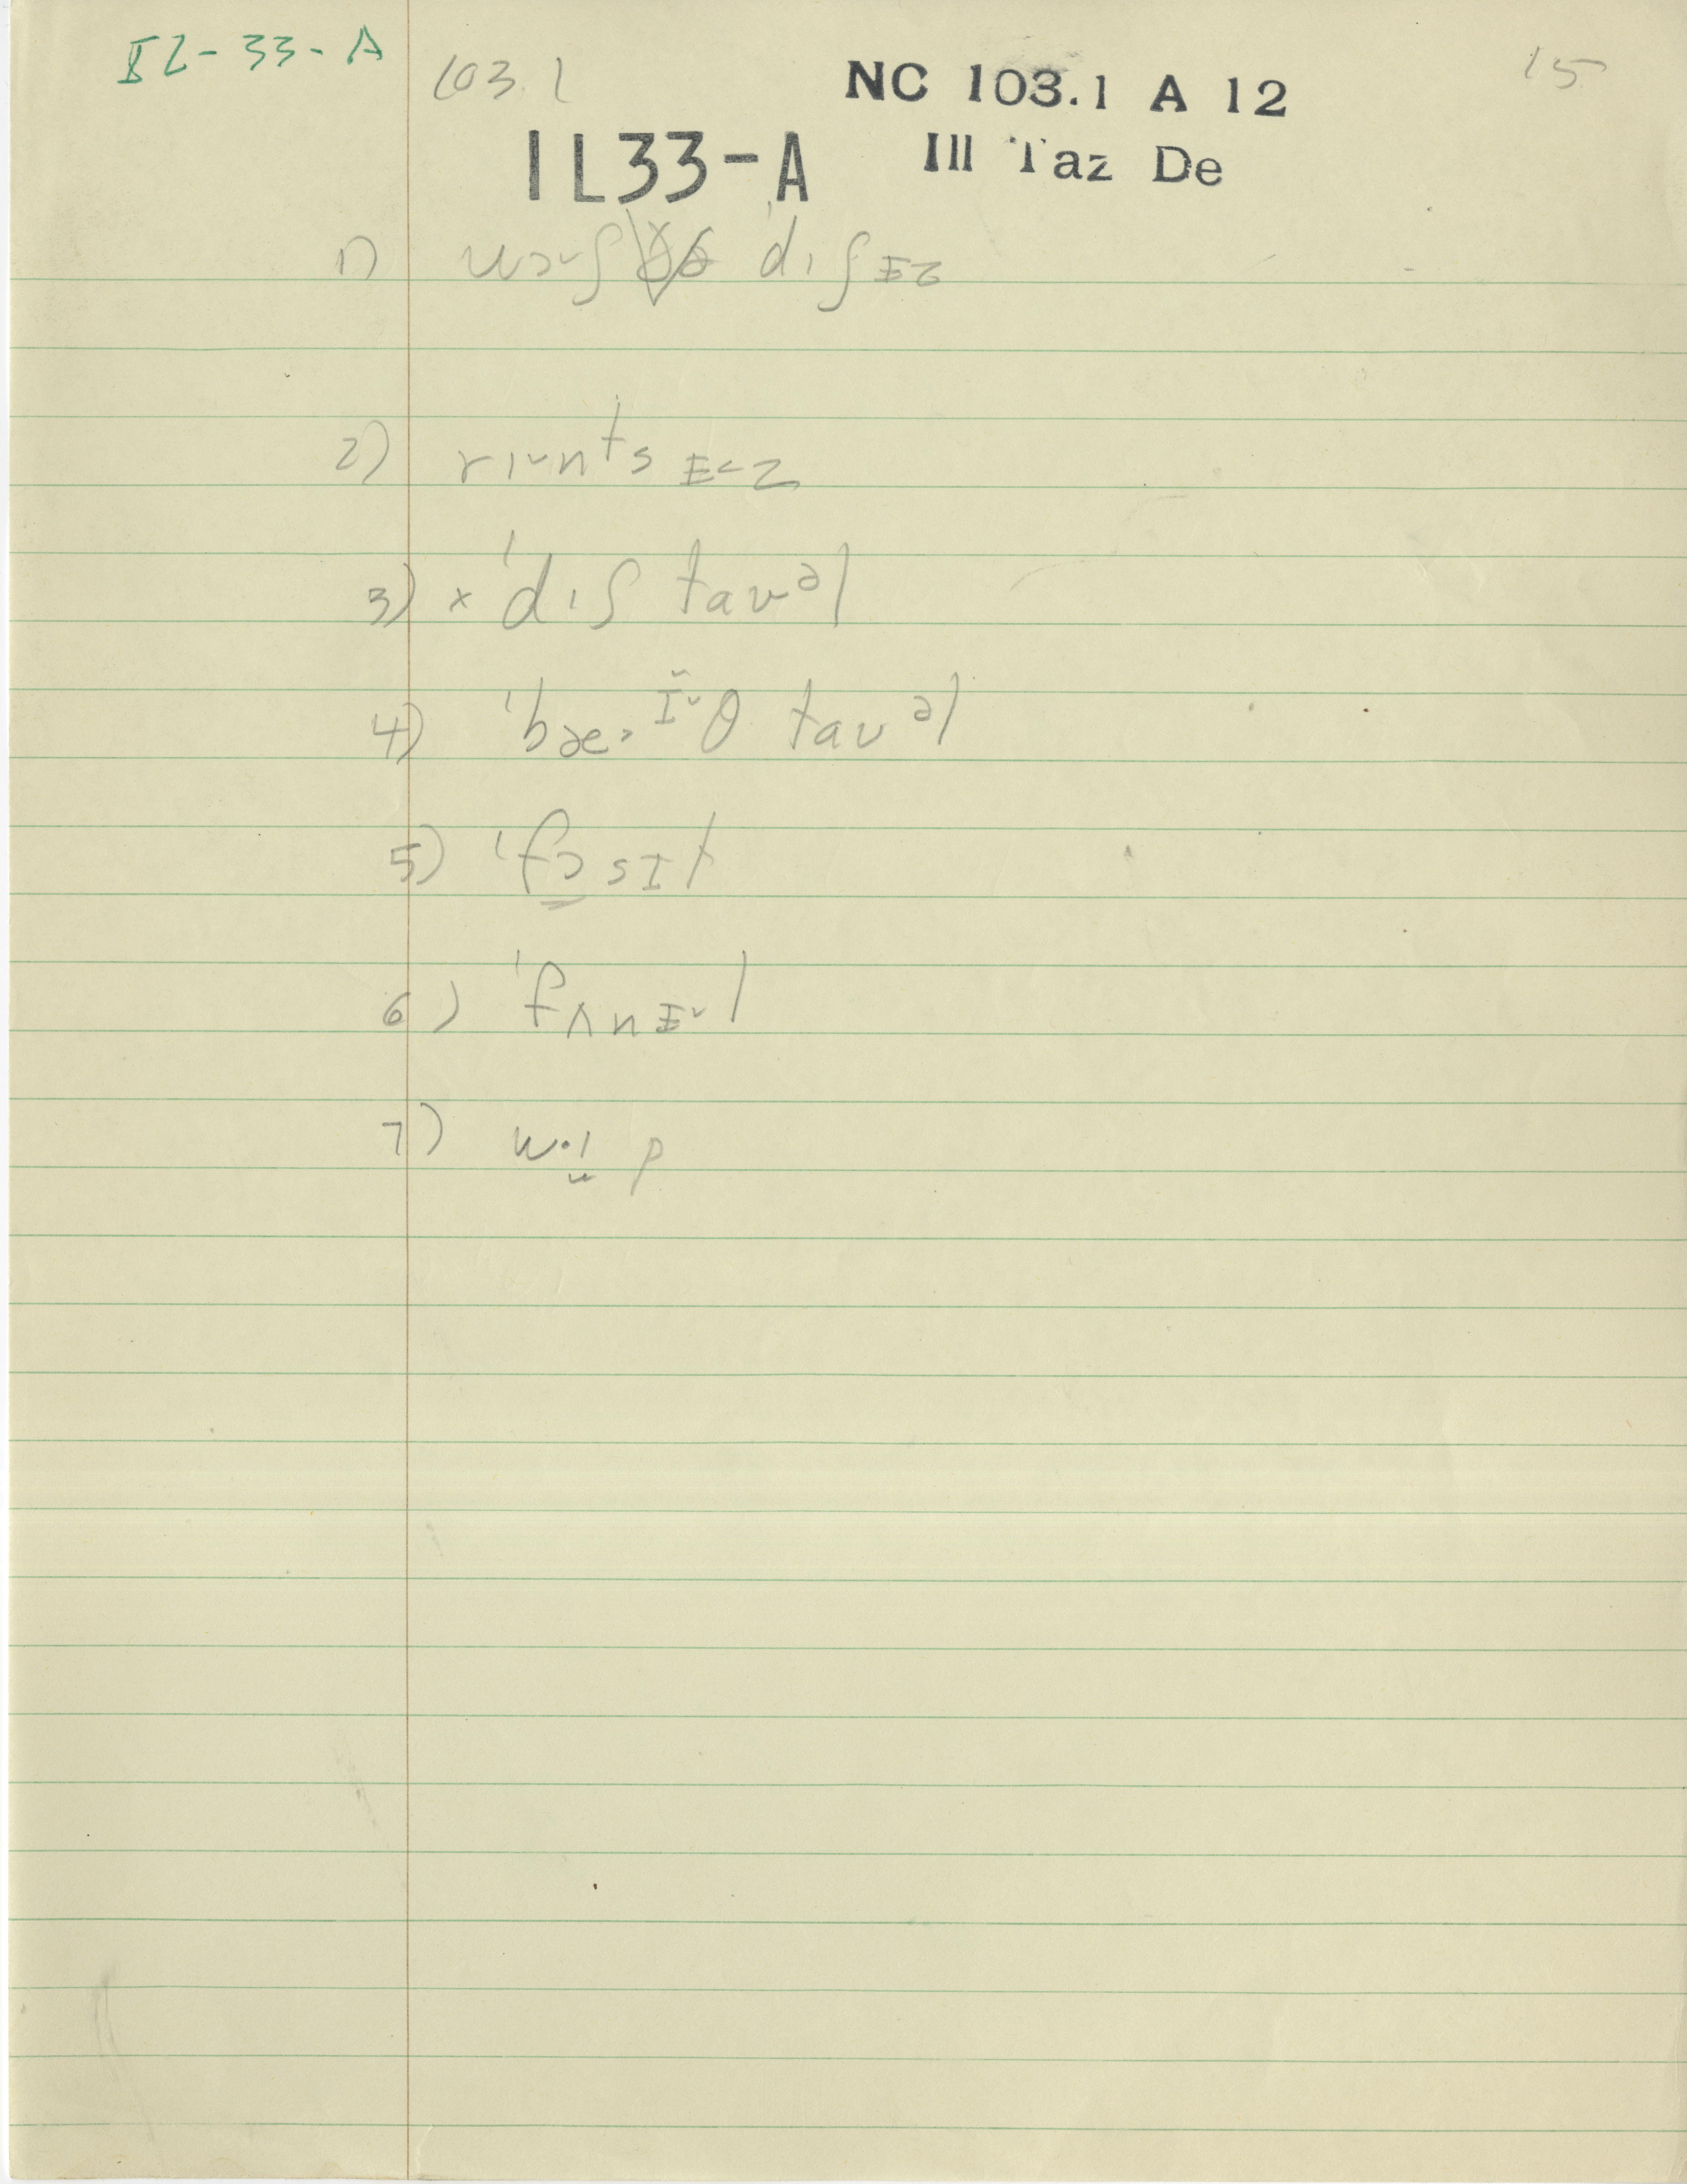 IL-33-A 103.1 NC 103.1 A 12 15
IL33-A Ill Taz De
1) wɔ˞ʃ ˈdɪʃɪz
2) rɪ˞ntsɪ˂z
3) × ˈdɪʃ taʊəl
4) ˈbæ˃ɪ̆˞θ taʊəl
5) ˈfɔsɪt
6) ˈfʌnɪ˞l
7) p